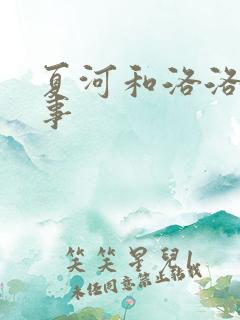 夏河和洛洛
事
笑笑星兒
未经同意禁止转载